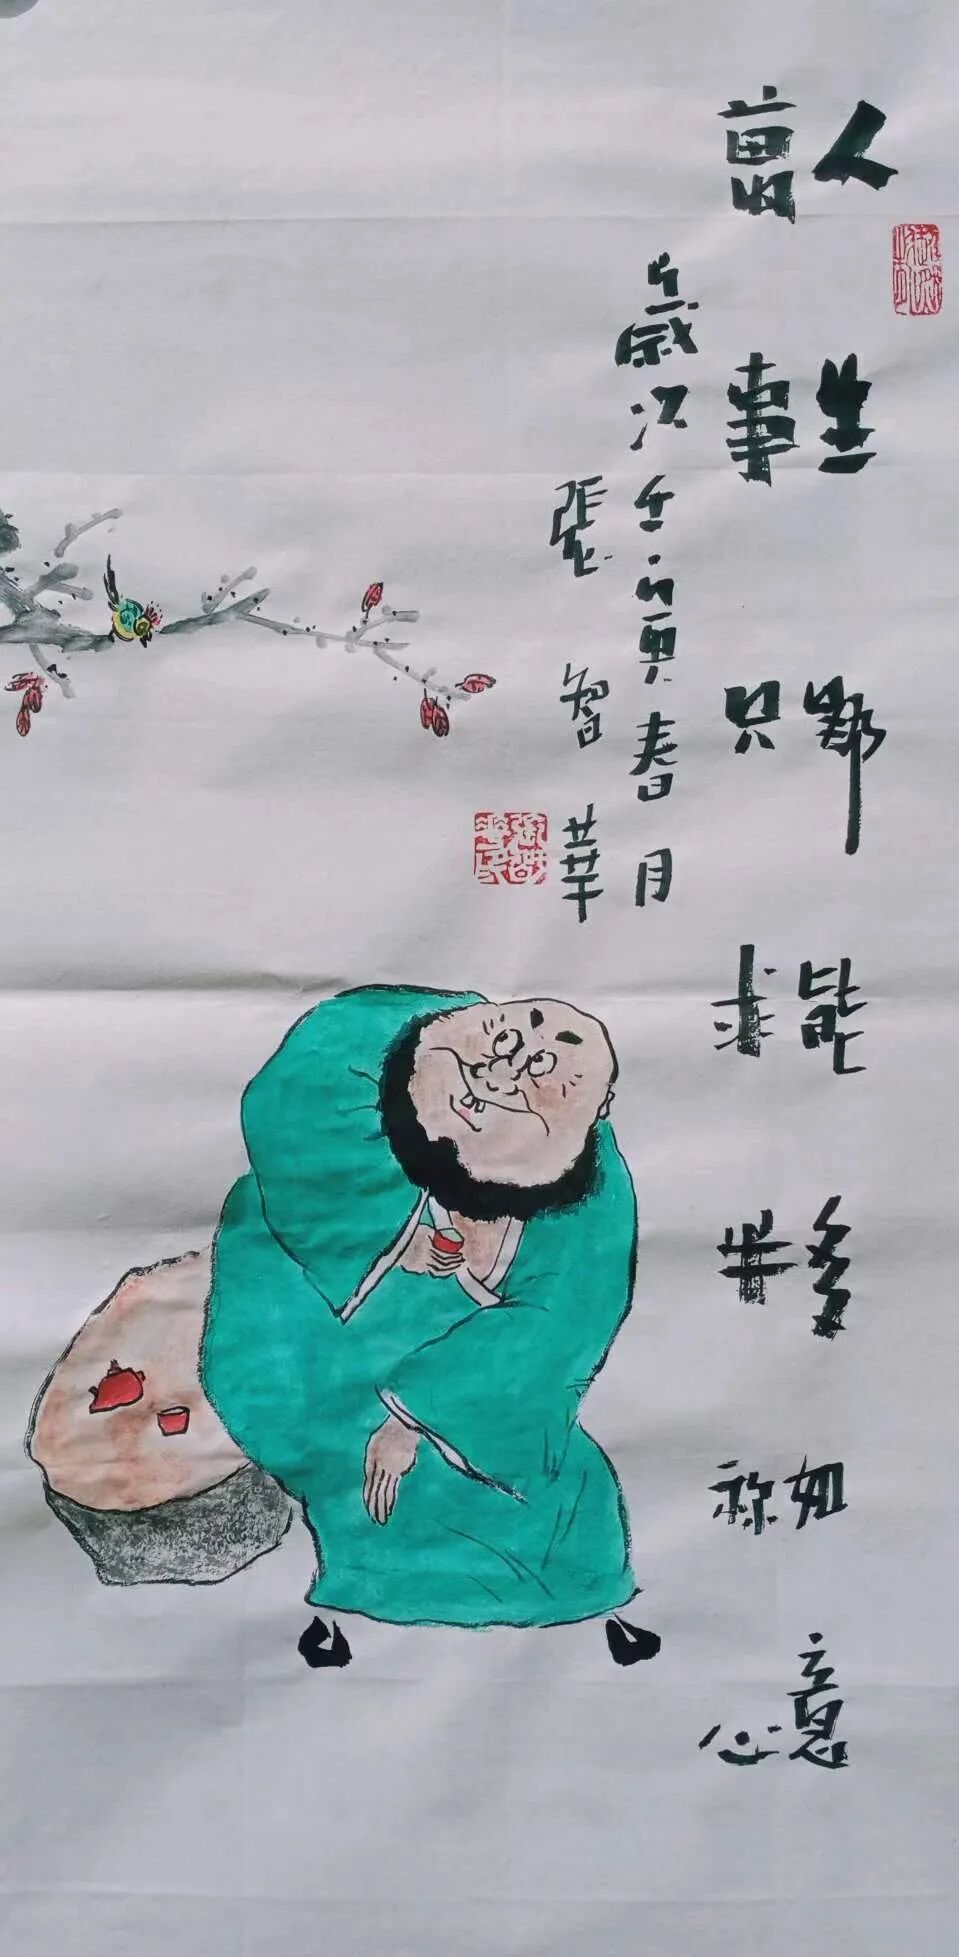 人生哪能多如意
萬事只求半称心
歲次壬寅春月
張智華
張智華印